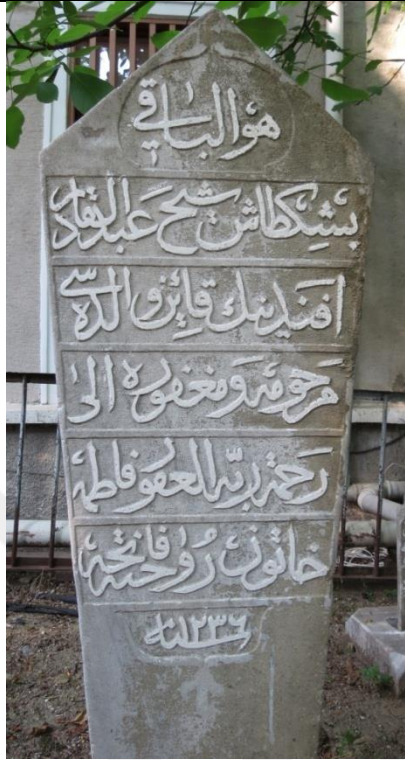 هو الباقي
بشكطاش شيخ عبد القادر
افندينك قاين والده سى
مرحومه و مغفوره الى
رحمة ربه الغفور فاطمه
خاتون روحنه فاتحه
سنه ١٢٣٦